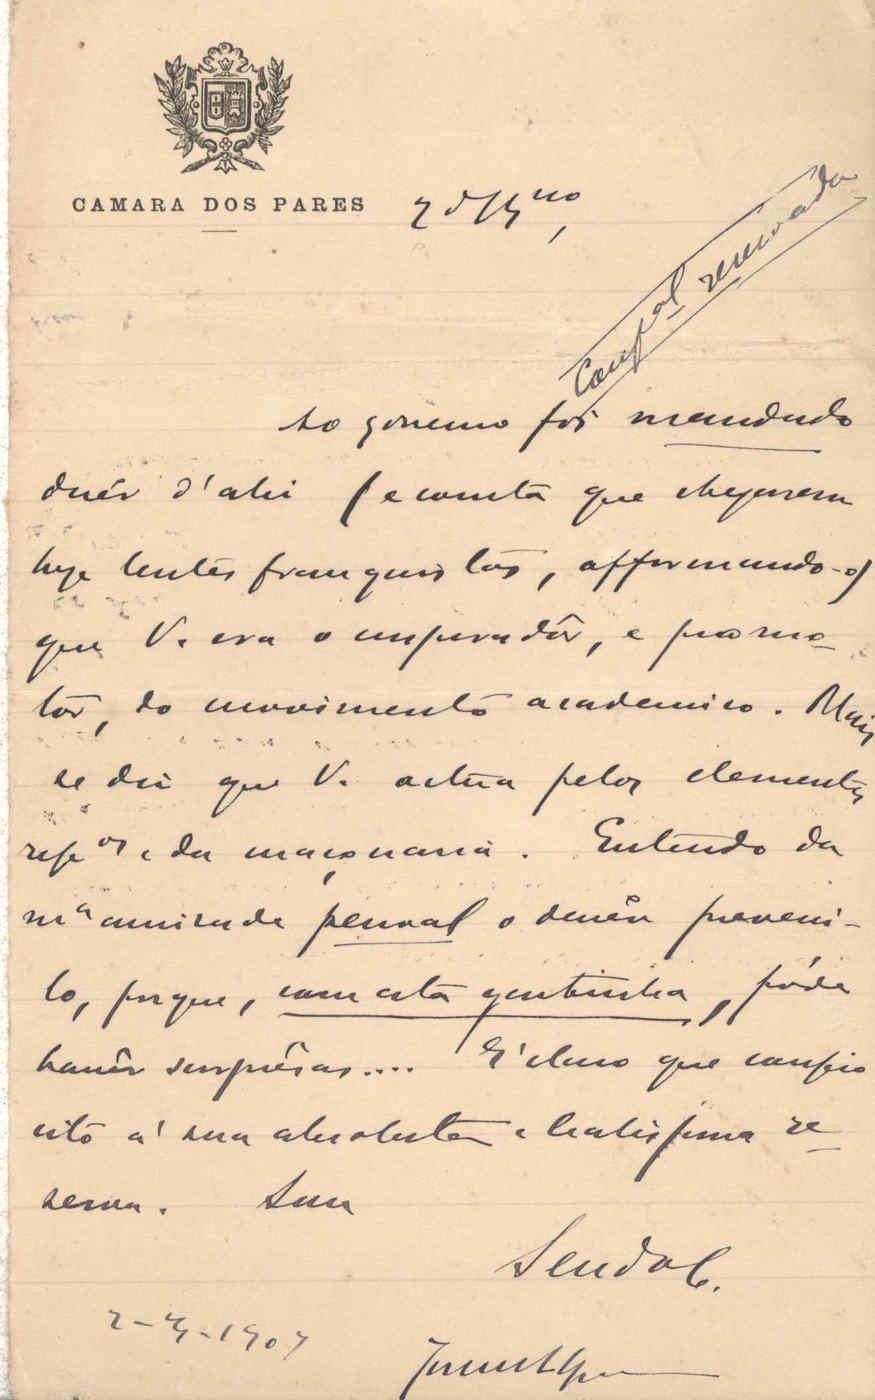 CAMARA DOS PARES
Conf.al reservada
Ao governo foi mandado
dizêr d'ahi (e consta que chegaram
hoje lentes franquistas, affirmando-o)
que V. era o inspiradôr, e promo-
tôr, do movimento academico. Mais
se diz que V. actua pelos elementos
rep.os e da maçonaria. Entendo da
m.a amizade pessoal o devêr preveni-
lo, porque, com esta gentinha, póde
havêr surprêsas.... E' claro que confio
isto á sua absoluta e lealissima re-
serva. Sou
2-4-1907